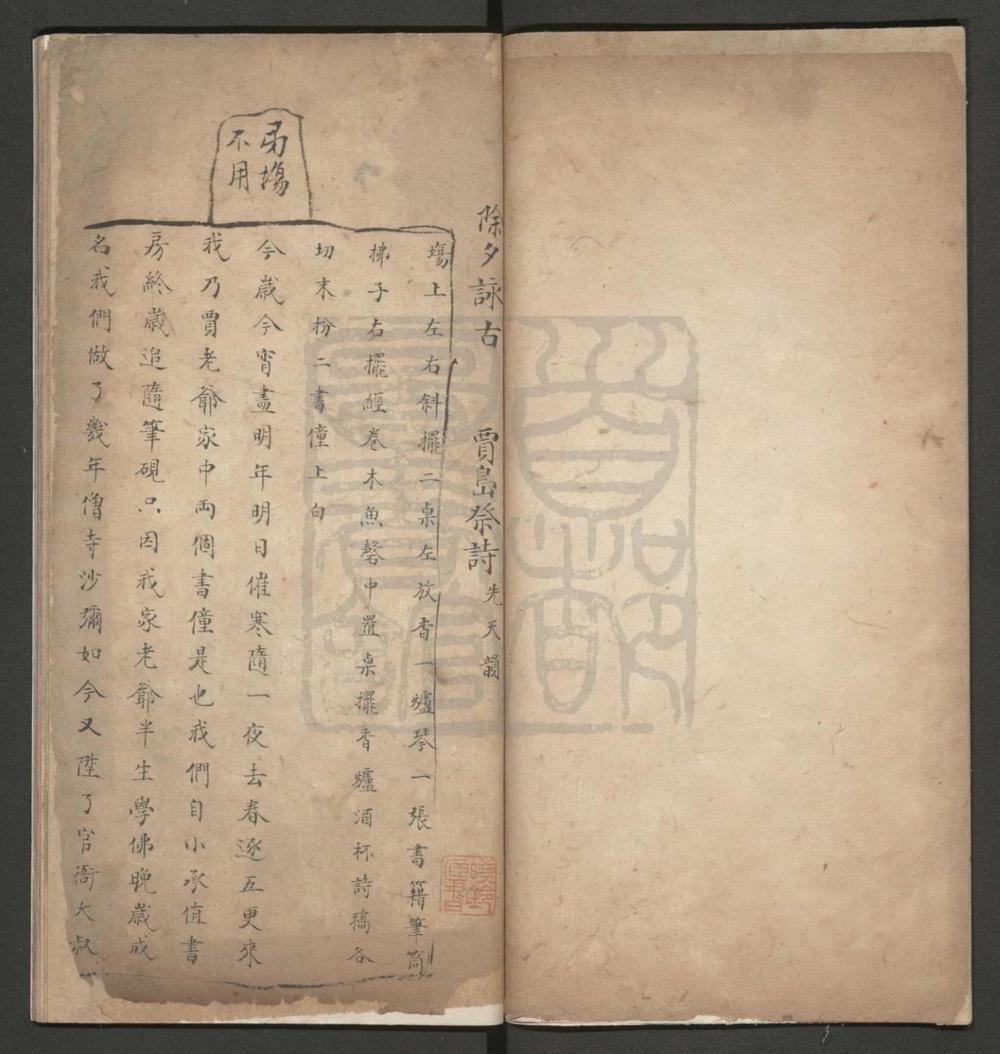 除夕詠古 賈島祭詩 先天韻
場上左右斜擺二桌左放香一爐琴一張書籍筆筒
拂子右擺經卷木魚磬中置桌擺香爐酒杯詩稿各
切末扮二書僮上白
今歲今宵盡明年明日催寒隨一夜去春逐五更來
我乃賈老爺家中両個書僮是也我們自小承值書
房終歲追隨筆硯只因我家老爺半生學佛晚歲成
名我們做了幾年僧寺沙彌如今又陞了官衙大叔
吊場
不用